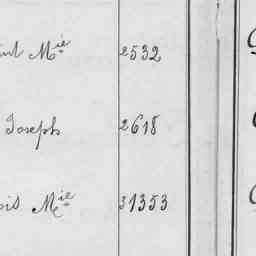 Mie 2532
Joseph 2618
Mie 31353